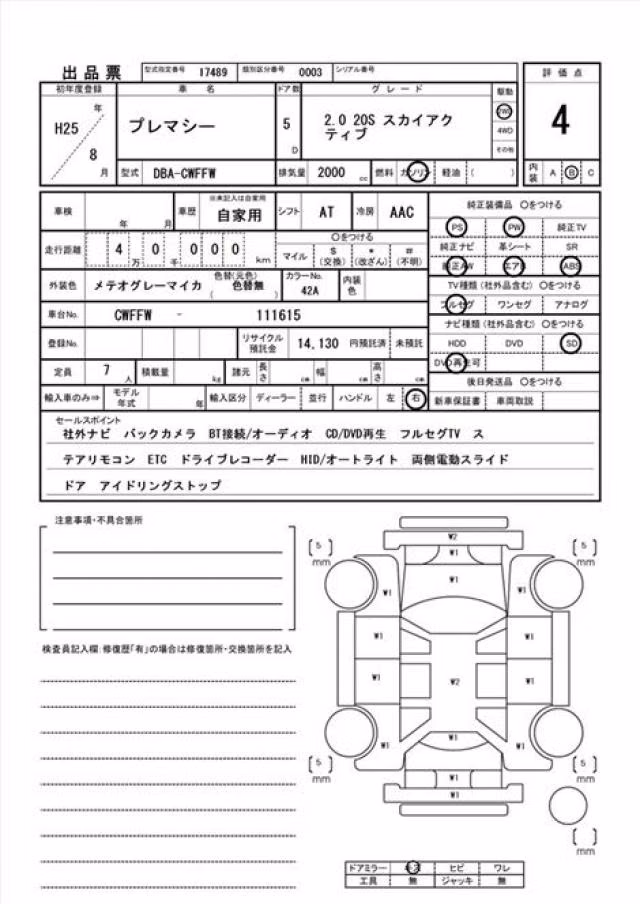 出品票 型式指定番号 17489 類別区分番号 0003 シリアル番号
評価点
初年度登録 車名 ドア数 グレード 駆動
H25 年 プレマシー 5 D 2.0 20S スカイアク 2WD 4
ティブ 4WD
8 月 その他
型式 DBA-CWFFW 排気量 2000 cc 燃料 ガソリン 軽油 ( ) 内装 A B C
車検 年 月 車歴 ※未記入は自家用 自家用 シフト AT 冷房 AAC 純正装備品 〇をつける
PS PW 純正TV
走行距離 4 万 0 千 0 0 0 km 〇をつける 純正ナビ 革シート SR
マイル $(交換) *(改ざん) #(不明) 純正AW エアB ABS
外装色 メテオグレーマイカ 色替(元色) ( 色替無 ) カラーNo. 42A 内装色 TV種類(社外品含む) 〇をつける
フルセグ ワンセグ アナログ
車台No. CWFFW - 111615 ナビ種類(社外品含む) 〇をつける
登録No. リサイクル預託金 14,130 円預託済 未預託 HDD DVD SD
DVD再生可
定員 7 人 積載量 kg 諸元 長さ cm 幅 cm 高さ cm 後日発送品 〇をつける
輸入車のみ⇒ モデル年式 年 輸入区分 ディーラー 並行 ハンドル 左 右 新車保証書 車両取説
セールスポイント
社外ナビ バックカメラ BT接続/オーディオ CD/DVD再生 フルセグTV ス
テアリモコン ETC ドライブレコーダー HID/オートライト 両側電動スライド
ドア アイドリングストップ
注意事項・不具合箇所
検査員記入欄:修復歴「有」の場合は修復箇所・交換箇所を記入
W2
5 mm W1 5 mm
W1
W1 W1
W1 W1
W1 W2 W1
W1 W1 W1
5 mm W1 5 mm
W1
mm
ドアミラー キズ ヒビ ワレ
工具 無 ジャッキ 無